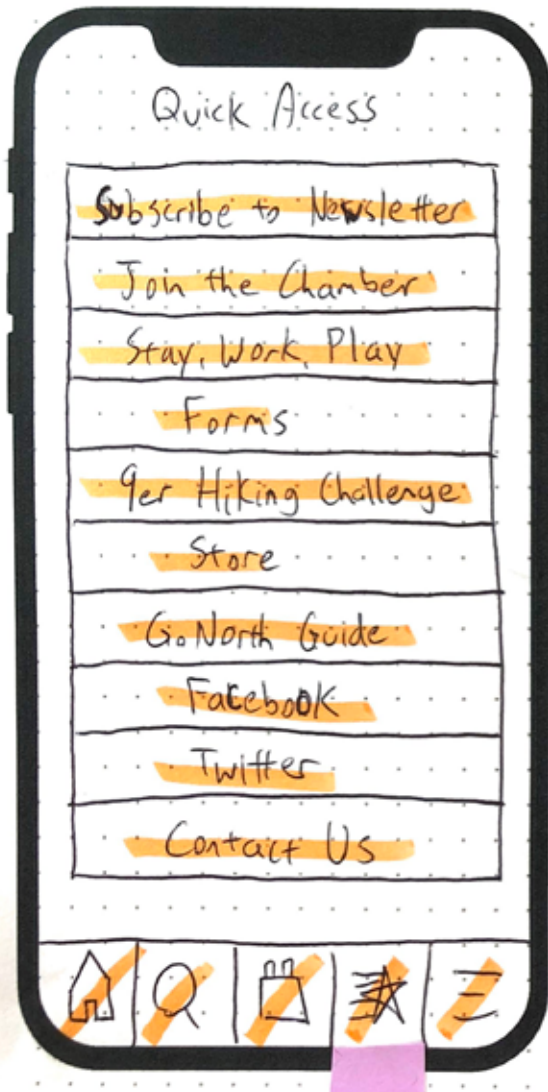 Quick Access
Subscribe to Newsletter
Join the Chamber
Stay, Work, Play
Forms
9er Hiking Challenge
Store
GoNorth Guide
Facebook
Twitter
Contact Us